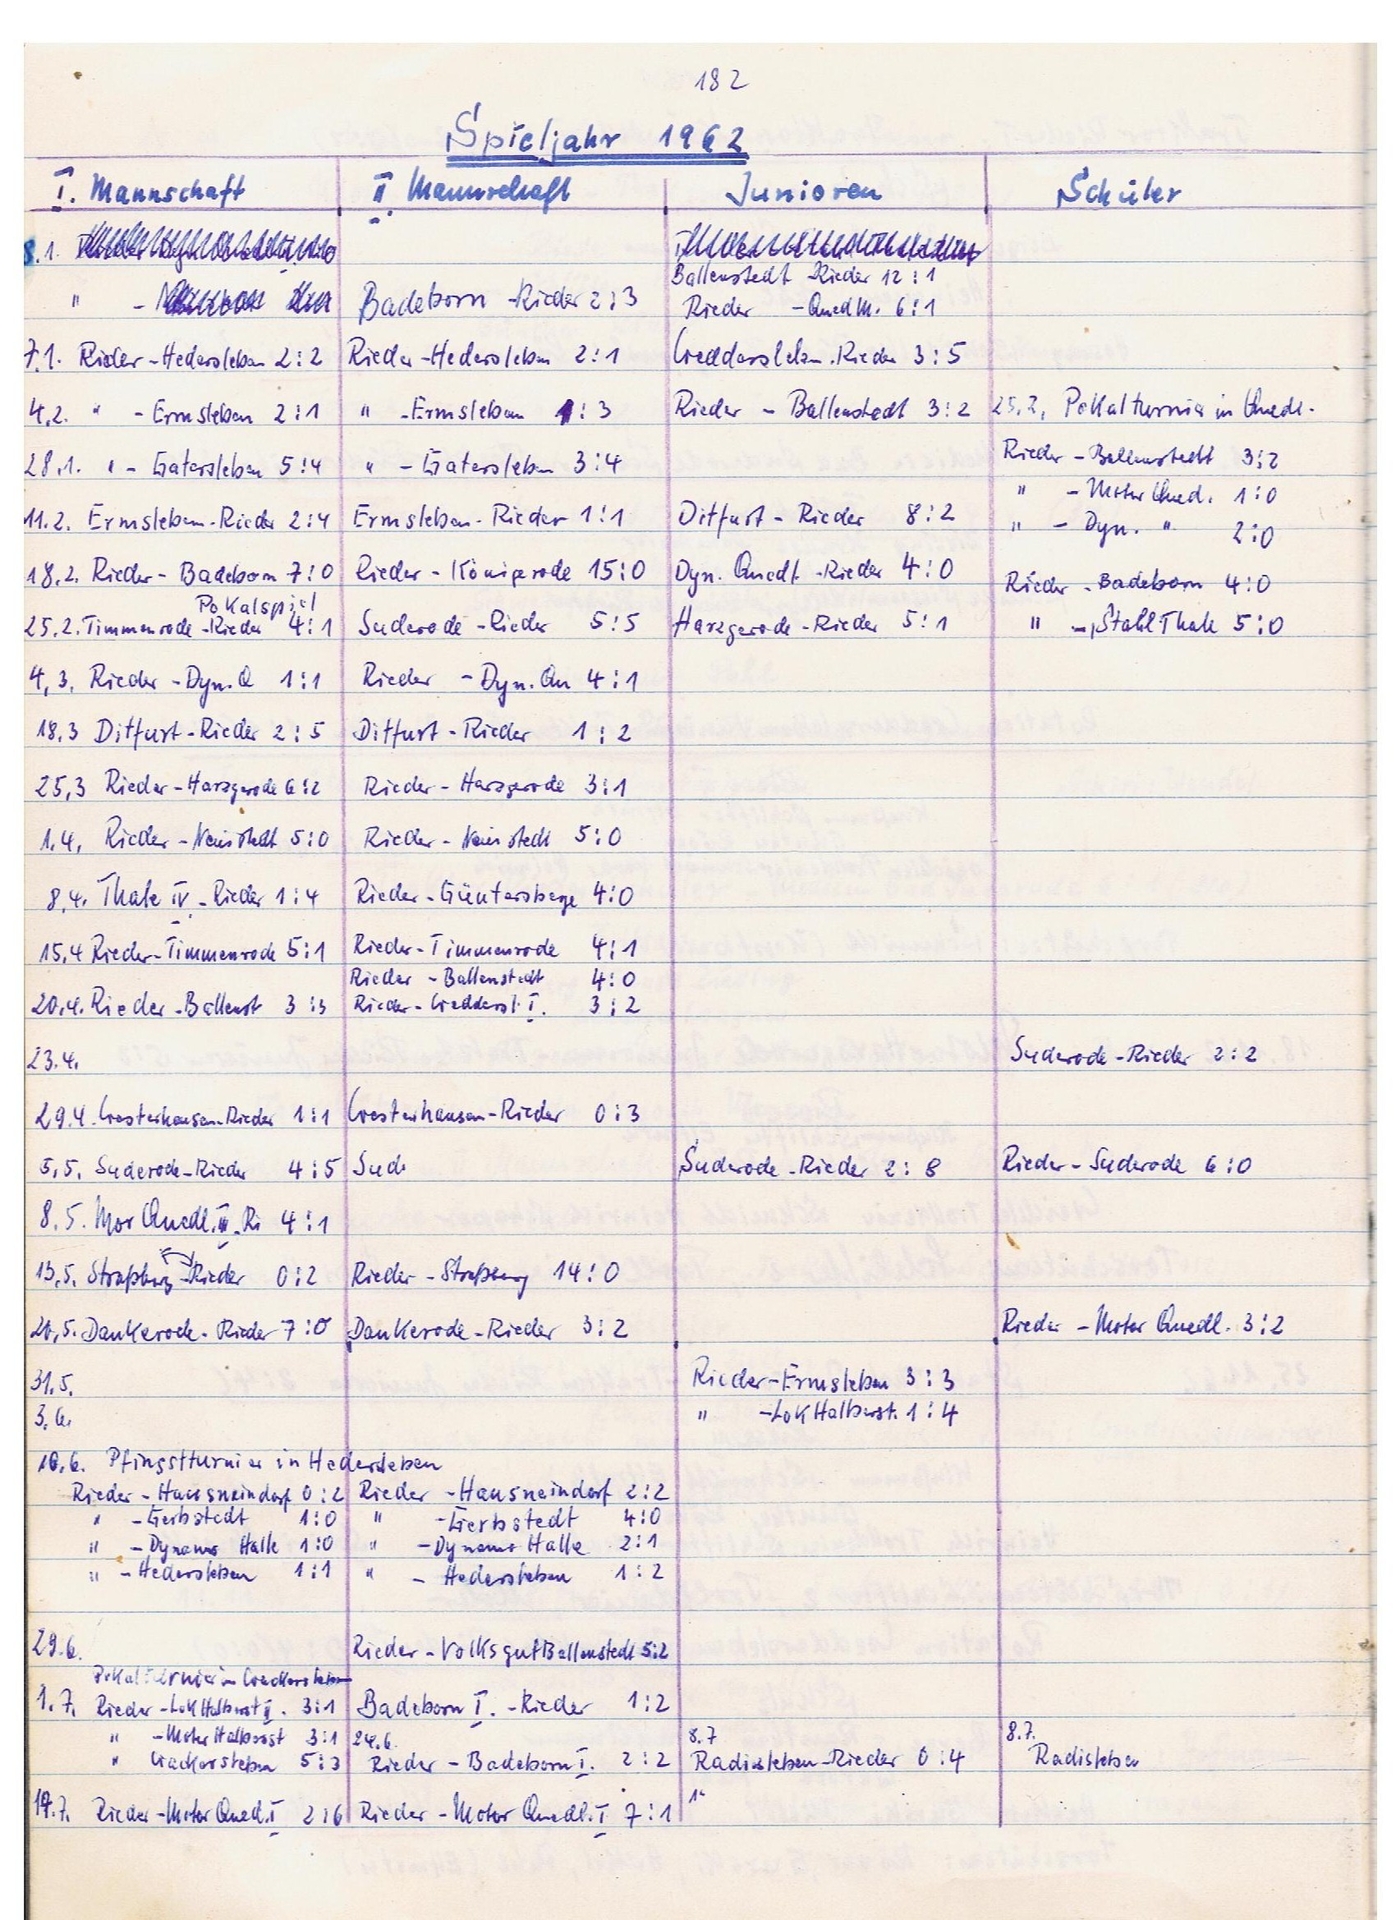 182
Spieljahr 1962
I. Mannschaft II Mannschaft Junioren Schüler
8.1.
Ballenstedt Rieder 12:1
" - Badeborn - Rieder 2:3 Rieder - Quedl. 6:1
7.1. Rieder - Hedersleben 2:2 Rieder - Hedersleben 2:1 Weddersleben - Rieder 3:5
4.2. " - Ermsleben 2:1 " - Ermsleben 1:3 Rieder - Ballenstedt 3:2 25.2. Pokalturnier in Quedl.
28.1. " - Gatersleben 5:4 " - Gatersleben 3:4 Rieder - Ballenstedt 3:2
" - Motor Qued. 1:0
11.2. Ermsleben - Rieder 2:4 Ermsleben - Rieder 1:1 Ditfurt - Rieder 8:2 " - Dyn. " 2:0
18.2. Rieder - Badeborn 7:0 Rieder - Königerode 15:0 Dyn. Quedl. - Rieder 4:0 Rieder - Badeborn 4:0
Pokalspiel
25.2. Timmenrode - Rieder 4:1 Suderode - Rieder 5:5 Harzgerode - Rieder 5:1 " - Stahl Thale 5:0
4.3. Rieder - Dyn. Q 1:1 Rieder - Dyn. Qu 4:1
18.3 Ditfurt - Rieder 2:5 Ditfurt - Rieder 1:2
25,3 Rieder - Harzgerode 6:2 Rieder - Harzgerode 3:1
1.4. Rieder - Neinstedt 5:0 Rieder - Neinstedt 5:0
8.4. Thale IV - Rieder 1:4 Rieder - Güntersberge 4:0
15.4 Rieder - Timmenrode 5:1 Rieder - Timmenrode 4:1
Rieder - Ballenstedt 4:0
20.4. Rieder - Ballenst 3:3 Rieder - Weddersl. I. 3:2
23.4. Suderode - Rieder 2:2
29.4. Westerhausen - Rieder 1:1 Westerhausen - Rieder 0:3
5.5. Suderode - Rieder 4:5 Sude Suderode - Rieder 2:8 Rieder - Suderode 6:0
8.5. Mor Quedl. III - Ri 4:1
13.5. Straßberg - Rieder 0:2 Rieder - Straßberg 14:0
20.5. Dankerode - Rieder 7:0 Dankerode - Rieder 3:2 Rieder - Motor Quedl. 3:2
31.5. Rieder - Ermsleben 3:3
3.6. " - Lok Halberst. 1:4
10.6. Pfingstturnier in Hedersleben
Rieder - Hausneindorf 0:2 Rieder - Hausneindorf 2:2
" - Gerbstedt 1:0 " - Gerbstedt 4:0
" - Dynamo Halle 1:0 " - Dynamo Halle 2:1
" - Hedersleben 1:1 " - Hedersleben 1:2
29.6. Rieder - Volksgut Ballenstedt 5:2
Pokalturnier in Wackersleben
1.7. Rieder - Lok Halberst II. 3:1 Badeborn I. - Rieder 1:2
" - Motor Halberst 3:1 24.6. 8.7 8.7.
" Wackersleben 5:3 Rieder - Badeborn I. 2:2 Radisleben - Rieder 0:4 Radisleben
14.7. Rieder - Motor Qued. I 2:6 Rieder - Motor Quedl. I 7:1